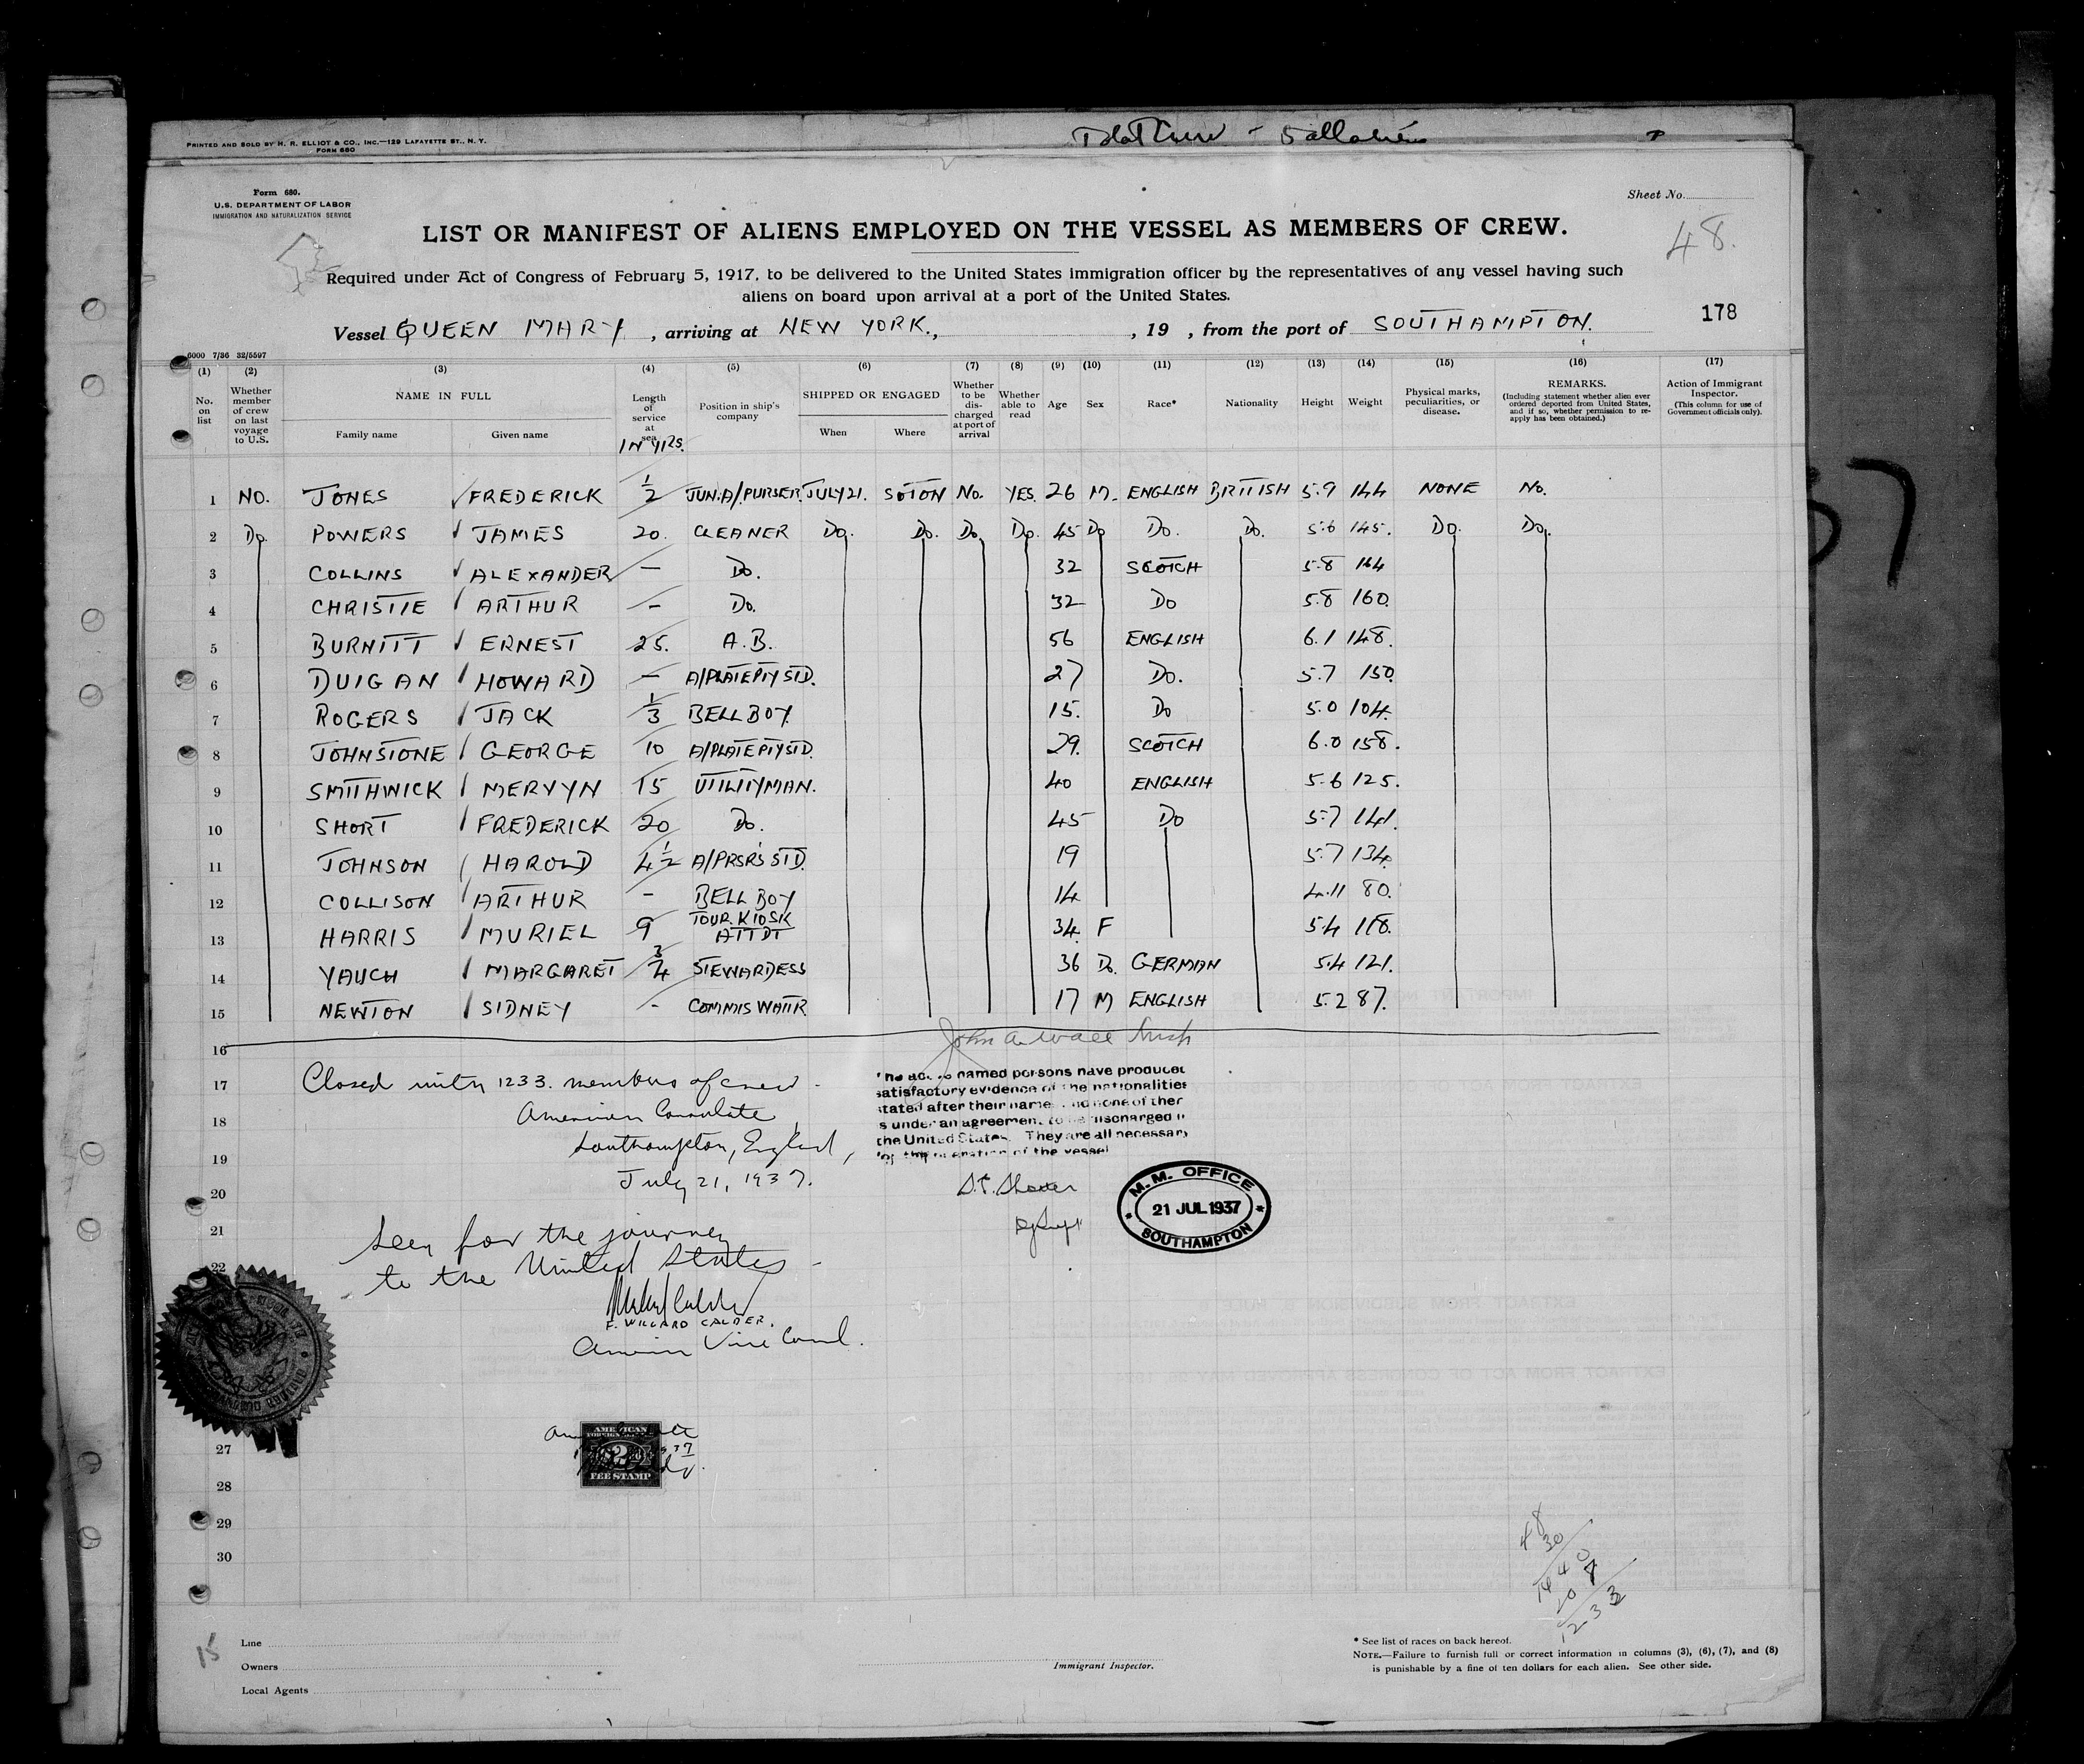 PRINTED AND SOLD BY H. R. ELLIOT & CO., INC.—129 LAFAYETTE ST., N. Y.
FORM 680
Form 680.
U.S. DEPARTMENT OF LABOR
IMMIGRATION AND NATURALIZATION SERVICE
Sheet No.
48.
LIST OR MANIFEST OF ALIENS EMPLOYED ON THE VESSEL AS MEMBERS OF CREW.
Required under Act of Congress of February 5, 1917, to be delivered to the United States immigration officer by the representatives of any vessel having such
aliens on board upon arrival at a port of the United States.
178
Vessel QUEEN MARY, arriving at NEW YORK., , 19 , from the port of SOUTHAMPTON.
6000 7/36 32/5597
(1) (2) (3) (4) (5) (6) (7) (8) (9) (10) (11) (12) (13) (14) (15) (16) (17)
No. on list
Whether member of crew on last voyage to U.S.
NAME IN FULL
Family name Given name
Length of service at sea
IN YRS.
Position in ship's company
SHIPPED OR ENGAGED
When Where
Whether to be discharged at port of arrival
Whether able to read
Age
Sex
Race*
Nationality
Height
Weight
Physical marks, peculiarities, or disease.
REMARKS.
(Including statement whether alien ever ordered deported from United States, and if so, whether permission to re-apply has been obtained.)
Action of Immigrant Inspector.
(This column for use of Government officials only).
1 NO. JONES FREDERICK 1/2 JUN.A/.PURSER. JULY 21. SOTON No. YES. 26 M. ENGLISH BRITISH 5.9 144 NONE No.
2 Do. POWERS JAMES 20. CLEANER Do. Do. Do. Do. 45 Do Do. Do. 5.6 145. Do. Do.
3 COLLINS ALEXANDER — Do. 32 SCOTCH 5.8 164
4 CHRISTIE ARTHUR — Do. 32 Do 5.8 160.
5 BURNITT ERNEST 25. A.B. 56 ENGLISH 6.1 148.
6 DUIGAN HOWARD — A/PLATEPTY STD. 27 Do. 5.7 150.
7 ROGERS JACK 1/3 BELL BOY. 15. Do 5.0 104.
8 JOHNSTONE GEORGE 10 A/PLATEPTY STD. 29. SCOTCH 6.0 158.
9 SMITHWICK MERVYN 15 UTILITYMAN. 40 ENGLISH 5.6 125.
10 SHORT FREDERICK 20 Do. 45 Do 5.7 141.
11 JOHNSON HAROLD 4 1/2 A/PRSR'S STD. 19 5.7 134.
12 COLLISON ARTHUR - BELL BOY 14 4.11 80.
13 HARRIS MURIEL 9 TOUR. KIOSK ATTDT 34. F 5.4 118.
14 YAUCH MARGARET 3/4 STEWARDESS 36 Do. GERMAN 5.4 121.
15 NEWTON SIDNEY - COMMIS WAITR. 17 M ENGLISH 5.2 87.
16
17
18
19
20
21
22
27
28
29
30
John A. Wall
Closed with 1233. members of crew.
American Consulate,
Southampton, England,
July 21, 1937.
named persons have produced
satisfactory evidence of the nationalities
stated after their name and none of them
is under an agreement to be discharged in
the United States. They are all necessary
for the operation of the vessel
M. M. OFFICE
21 JUL 1937
SOUTHAMPTON
Seen for the journey
to the United States.
F. WILLARD CALDER.
American Vice Consul.
AMERICAN
FOREIGN
2
FEE STAMP
48
30
1440
1233
15
Line
Owners
Local Agents
Immigrant Inspector.
* See list of races on back hereof.
NOTE.—Failure to furnish full or correct information in columns (3), (6), (7), and (8)
is punishable by a fine of ten dollars for each alien. See other side.